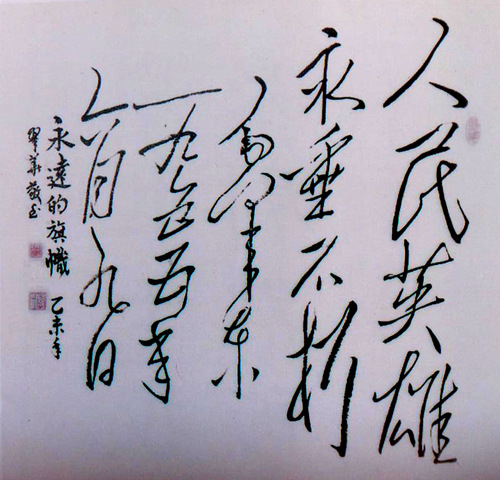 人民英雄
永垂不朽
毛泽东
一九五五年
六月九日
永遠的旗幟 乙未年